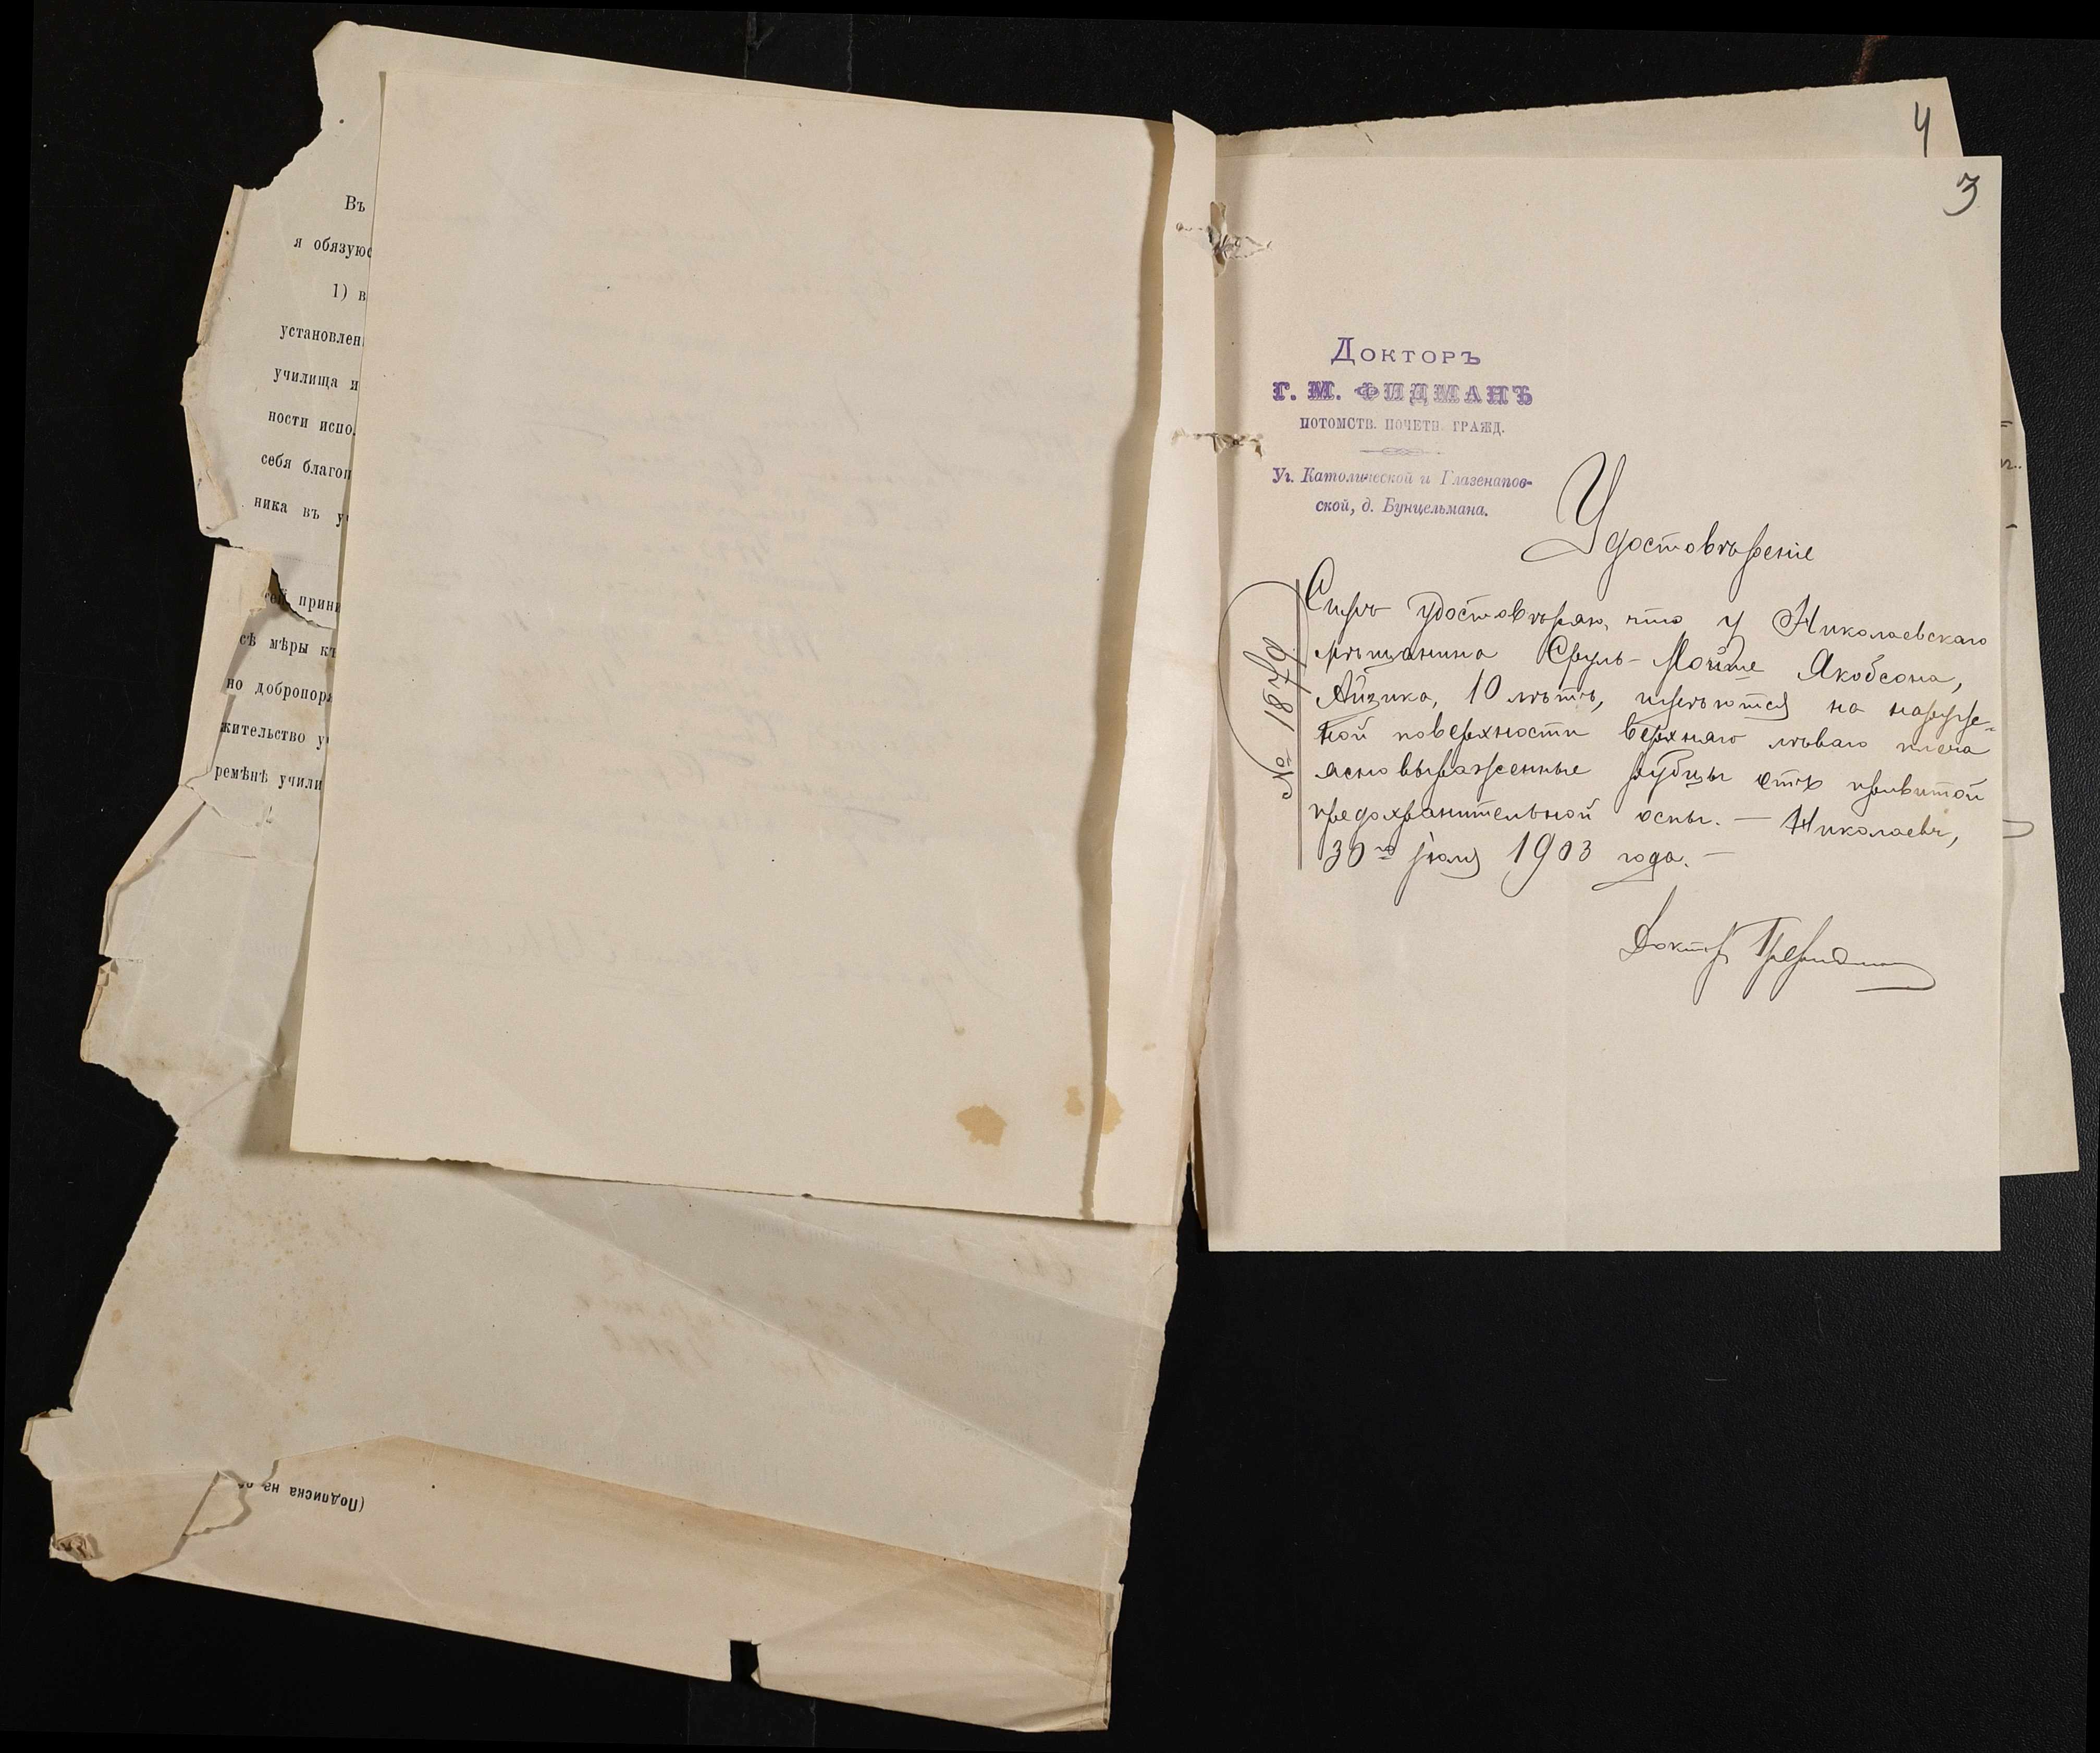 4
3
Докторъ
Г. М. ФИДМАНЪ
ПОТОМСТВ. ПОЧЕТН. ГРАЖД.
Уг. Католической и Глазенапов-
ской, д. Бунцельмана.
Удостовѣреніе
№ 1876
Симъ удостовѣряю, что у Николаевскаго
мѣщанина Сруль-Мойше Якобсона,
Айзика, 10 лѣтъ, имѣются на наруж-
ной поверхности верхняго лѣваго плеча
ясно выраженные рубцы отъ привитой
предохранительной оспы. — Николаевъ,
30го іюля 1903 года. —
Докторъ
Въ
я обязуюс
1) в
установлен
училища и
ности испо
себя благоп
ника въ у
сей прини
сѣ мѣры къ
но добропоря
жительство у
ремѣнѣ учили
(Подписка на